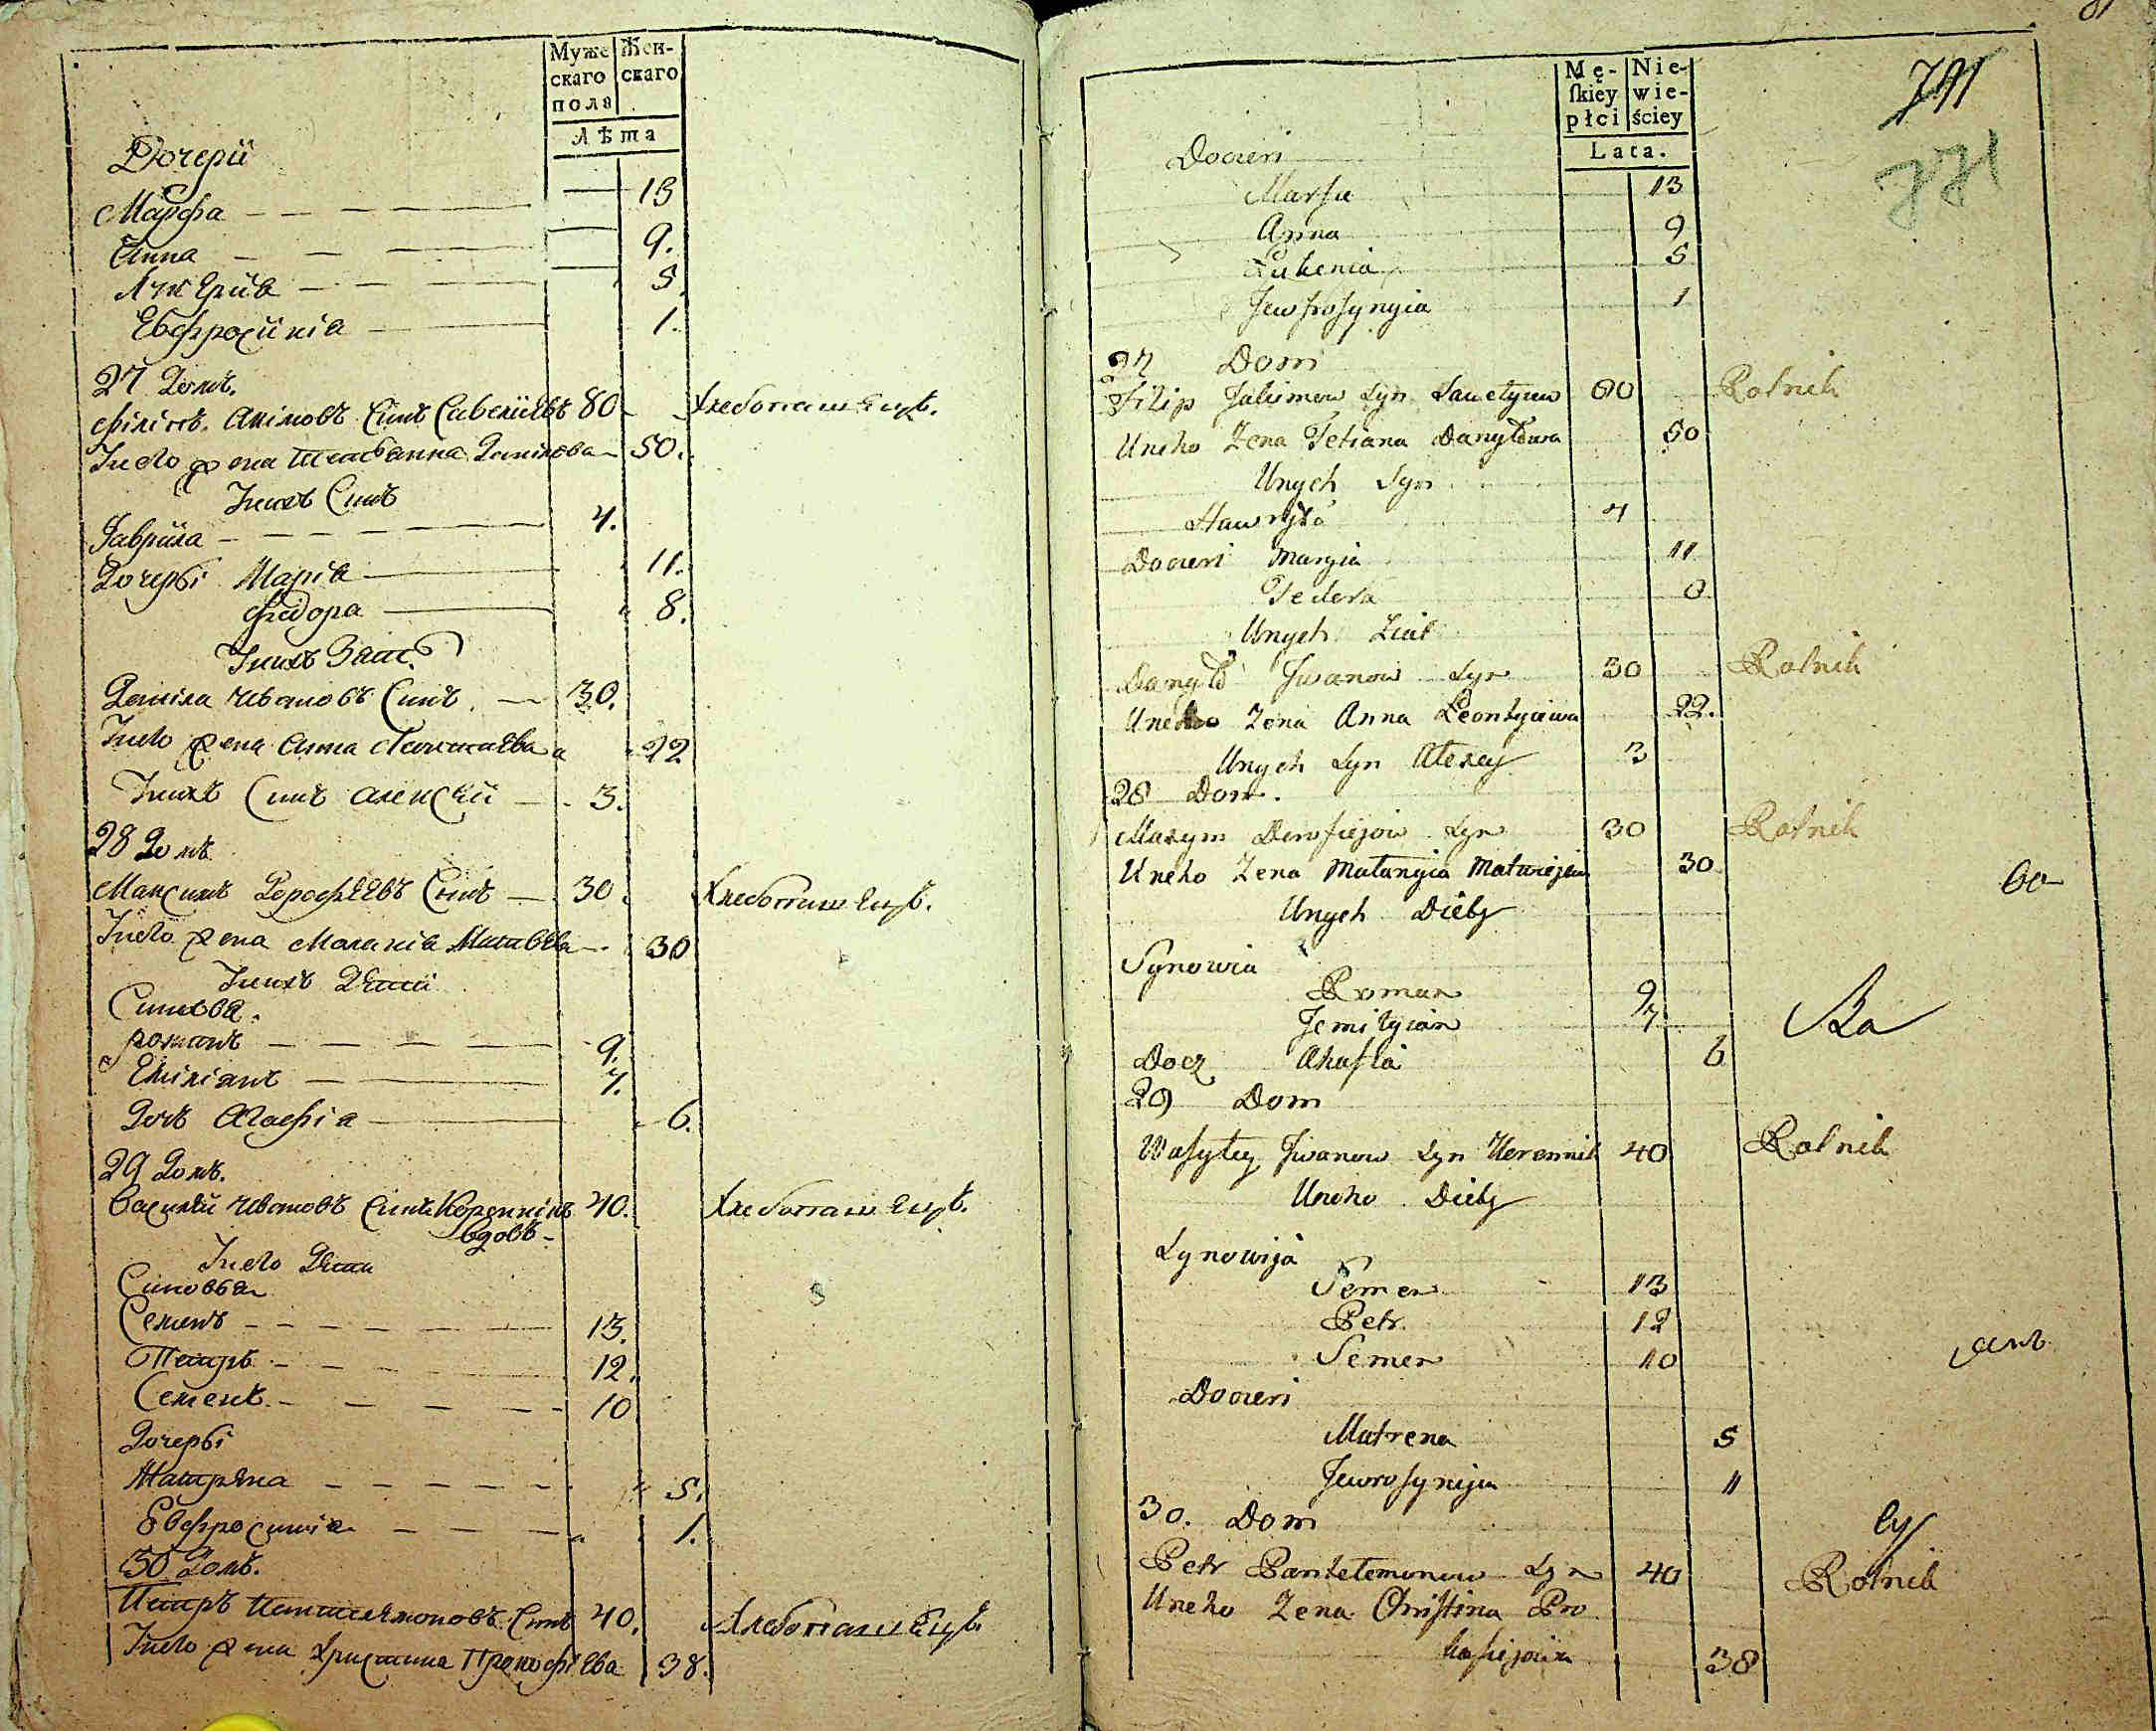 Муже Жен-
скаго скаго
пола
Лѣта
Дочерїи
Марфа 13
Анна 9.
Лукерїиа 5.
Евфросїинїа 1.
27 Домъ.
Филипъ Акимовъ Синъ Савелиевъ 80 Хлебопашецъ.
У него жена Татіанна Данилова 50.
У нихъ Синъ
Гаврїила 4.
Дочерьі Маріа 11.
Федора 8.
У нихъ Зать
Данила Ивановъ Синъ 30.
У него жена Анна Леонтиева 22
У нихъ Синъ Алексей 3.
28 Домъ
Максимъ Дорофеевъ Синъ 30. Хлебопашецъ.
У него жена Маланіа Матвеева 30
У нихъ Дети
Синовьа.
Романъ 9.
Емиліанъ 7.
Дочъ Агафіа 6.
29 Домъ.
Василий Ивановъ Синъ Коренникъ 40. Хлебопашецъ.
вдовъ
У него Дети
Синовьа
Семенъ 13.
Петръ 12.
Семенъ 10
Дочерьі
Матрена 5.
Евфросиніа 1.
30 Домъ.
Петръ Пантелемоновъ Синъ 40. Хлебопашецъ
У него жена Христина Прокофіева 38.
Mę- Nie-
ſkiey wie-
płci ściey
Lata.
791
771
Docieri
Marfa 13
Anna 9
Lukenia 5
Jewfrosynyia 1
27 Dom
Filip Jakimow Syn Sawelyiew 80 Rolnik
Uneho Zena Tetiana Danyłowa 50
Unych Syn
Hawryło 4
Docieri Maryia 11
Fedora 8
Unych Ziat
Danyło Jwanow Syn 30 Rolnik
Uneho Zena Anna Leontyiewa 22.
Unych Syn Alexey 3
28 Dom.
Maxym Dorofiejow Syn 30 Rolnik
Uneho Zena Małanyia Matwiejew 30
Unych Diety
Synowia
Roman 9
Jemilyian 7
Docz Ahafia 6
29 Dom
Wasyley Jwanow Syn Kerennik 40 Rolnik
Uneho Diety
Synowija
Semen 13
Petr 12
Semen 10
Docieri
Matrena 5
Jewrosynija 11
30. Dom
Petr Pantelemonow Syn 40 Rolnik
Uneho Zena Christina Pro
kofiejowa 38